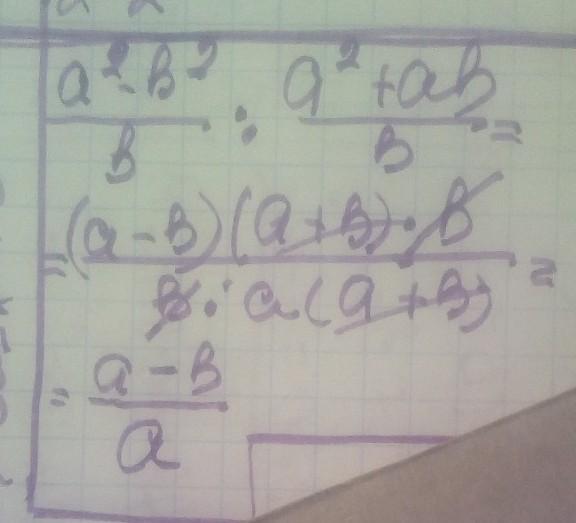 a² - b² / b : a² + ab / b =
= (a - b)(a + b) · b / b · a(a + b) =
= a - b / a